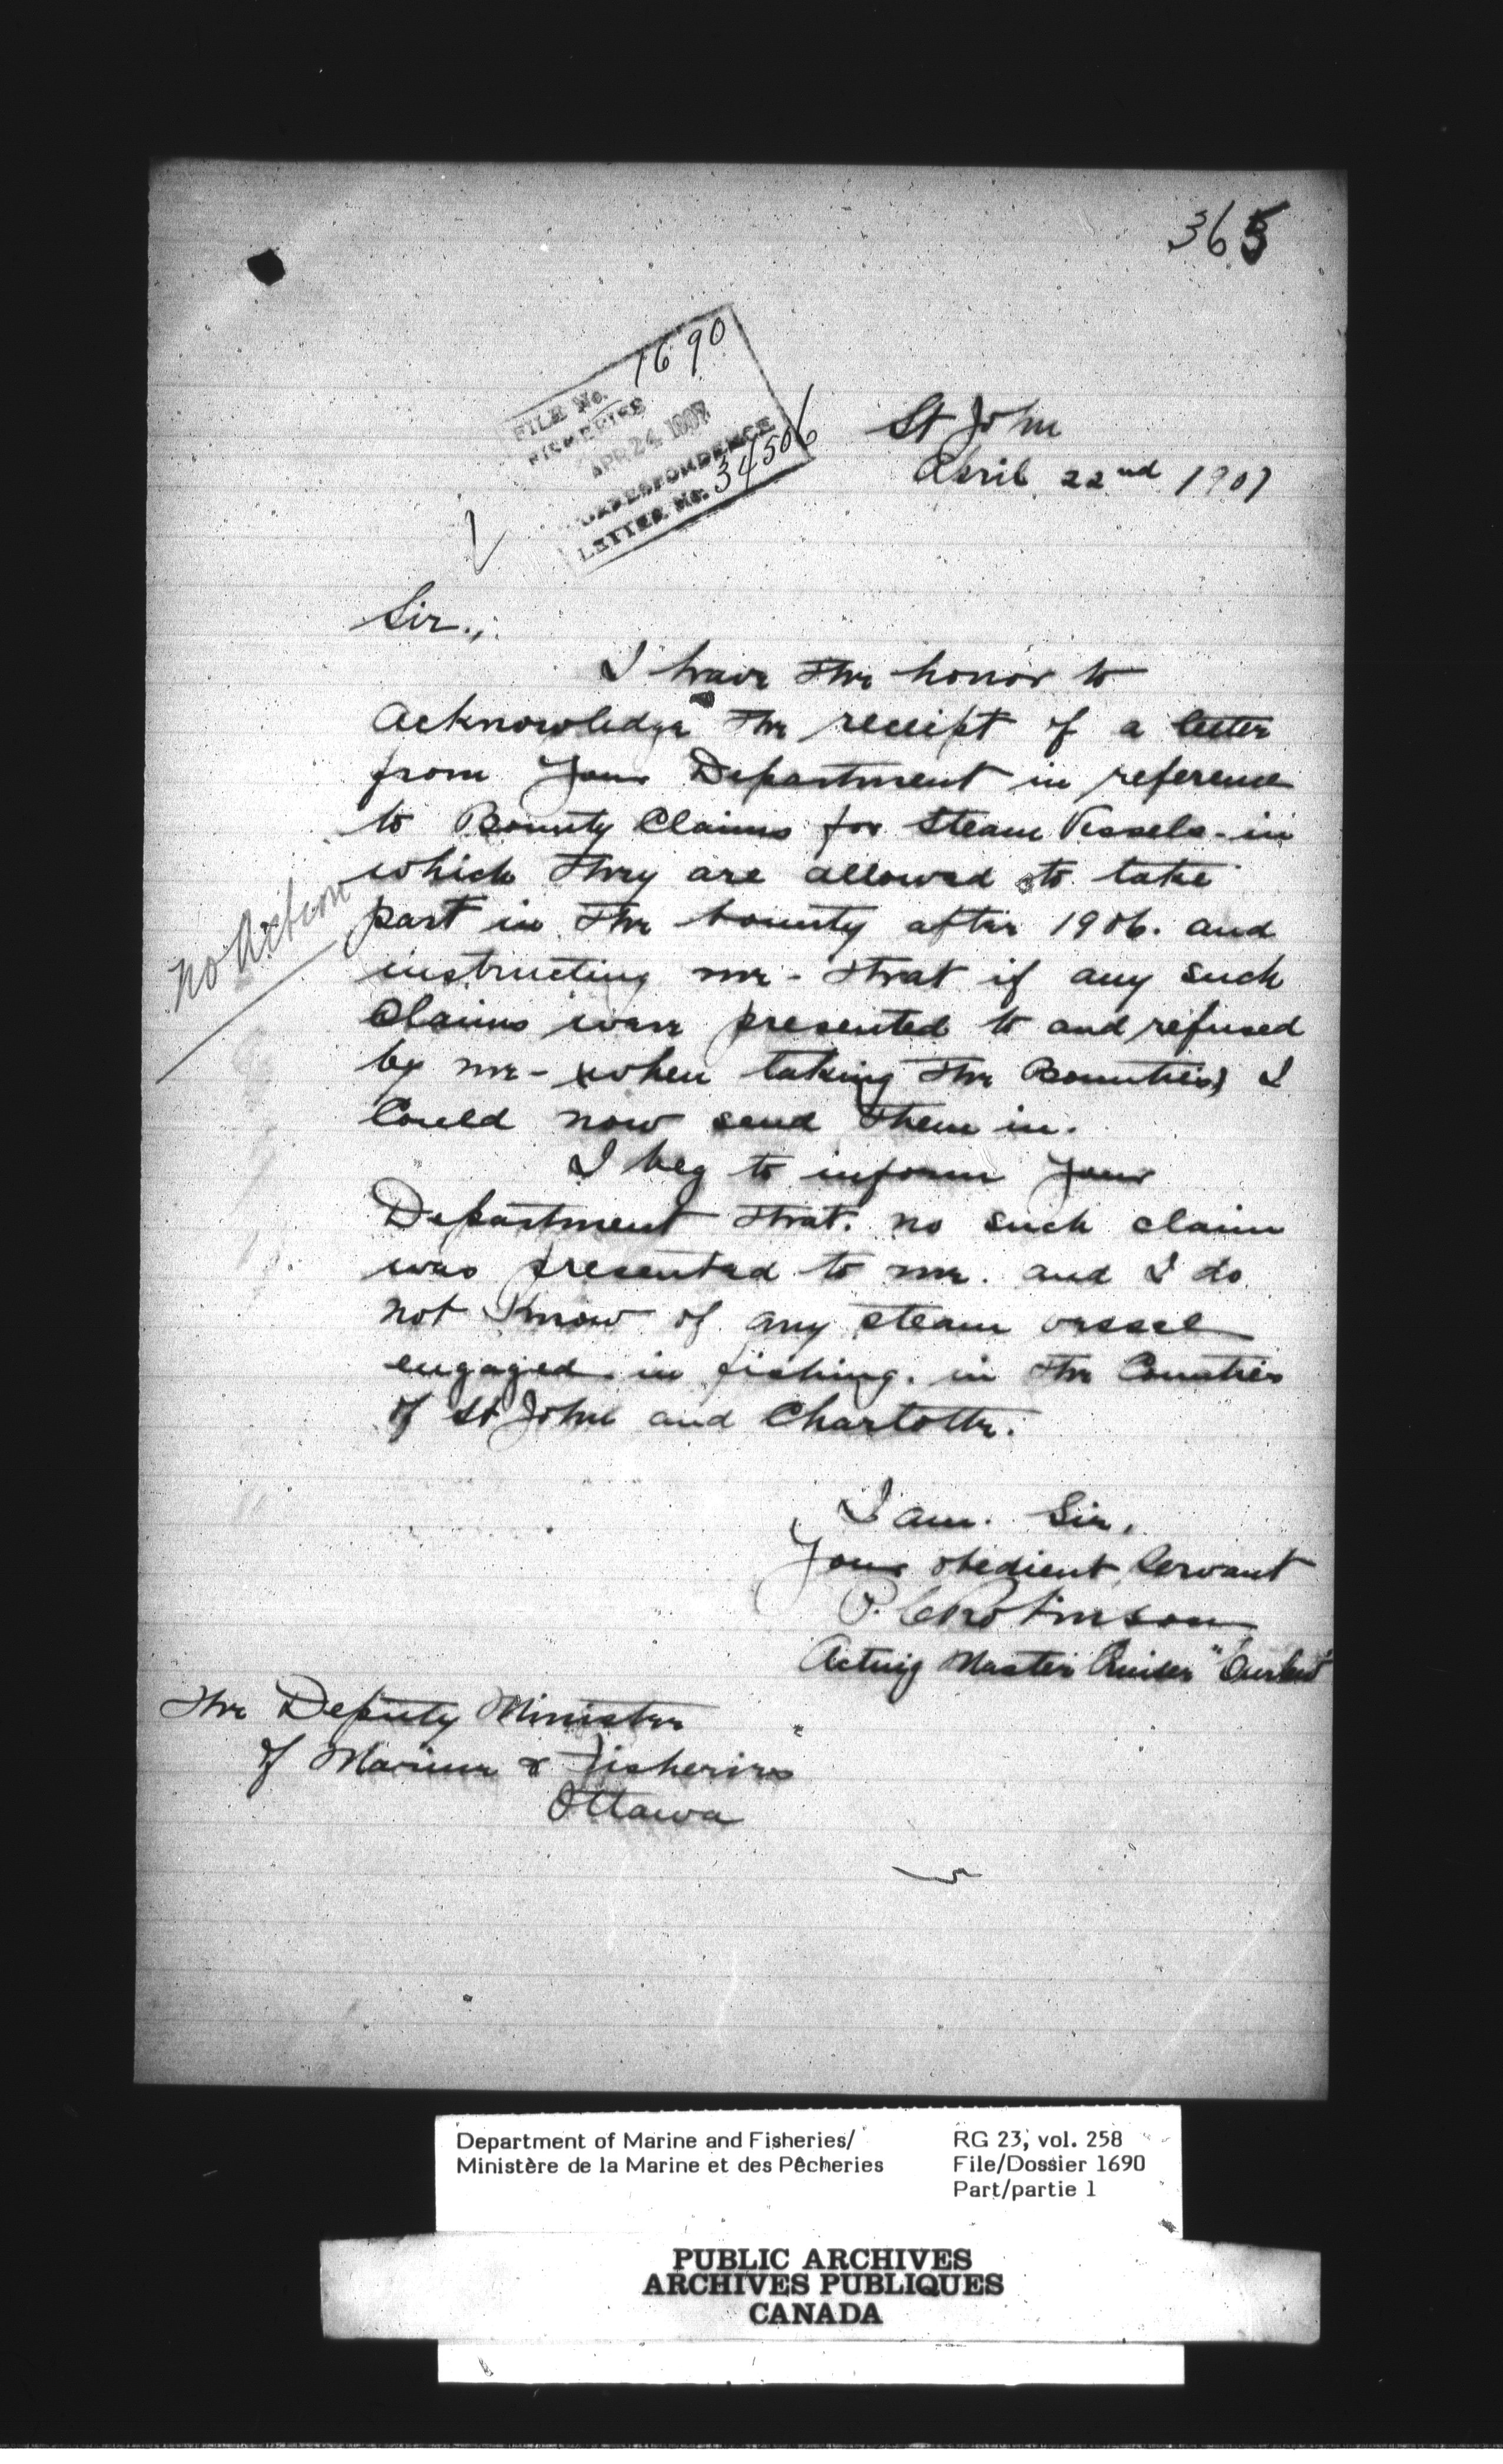 365
FILE No. 1690
FISHERIES
APR 24 1907
CORRESPONDENCE
LETTER No. 34506
St John
April 22nd 1907
Sir.,
I have the honor to
acknowledge the receipt of a letter
from your Department in reference
to Bounty Claims for Steam Vessels - in
which they are allowed to take
part in the bounty after 1906. and
instructing me - that if any such
Claims were presented to and refused
by me - when taking the Bounties, I
Could now send them in.
No Action
I beg to inform your
Department that. no such claim
was presented to me. and I do
not know of any steam vessel
engaged in fishing. in the Counties
of St John and Charlotte.
I am. Sir,
Your obedient Servant
P. C Robinson
Acting Master Cruiser "Curlew"
The Deputy Minister
of Marine & Fisheries
Ottawa
Department of Marine and Fisheries/
Ministère de la Marine et des Pêcheries
RG 23, vol. 258
File/Dossier 1690
Part/partie 1
PUBLIC ARCHIVES
ARCHIVES PUBLIQUES
CANADA